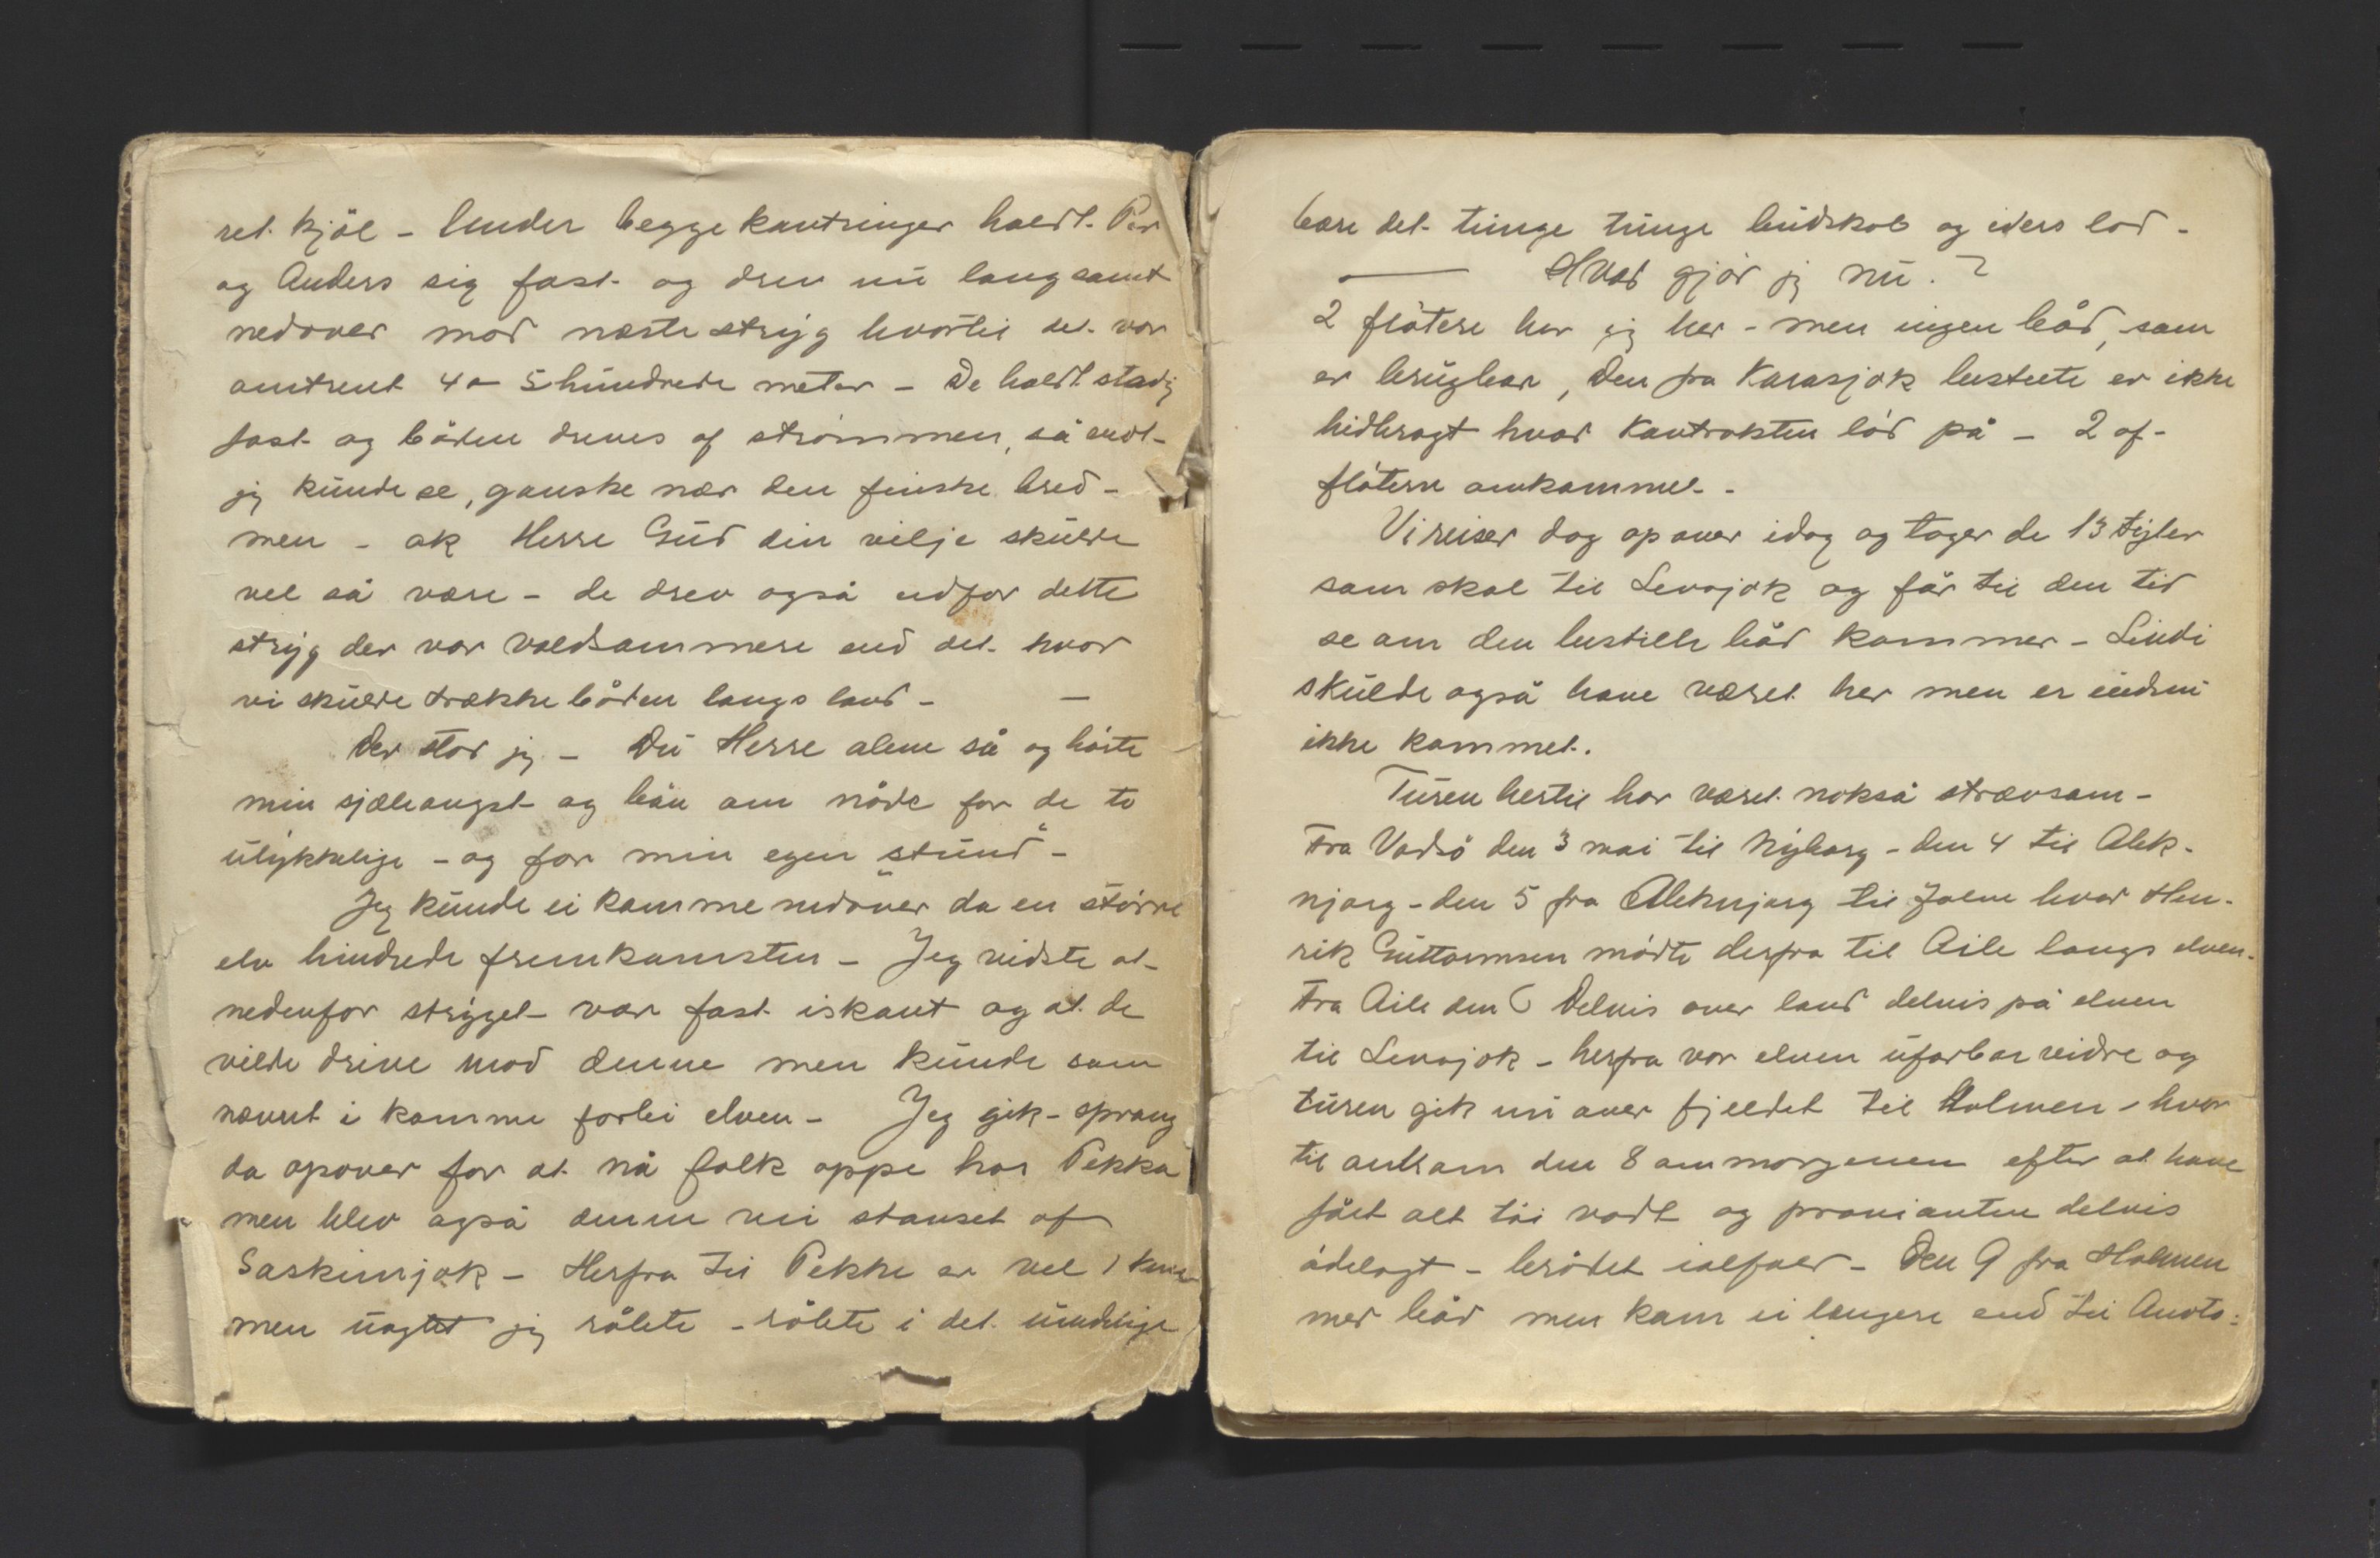 ret. kjöl - Under begge kantringer holdt. Per
og Anders sig fast. og drev nu langsomt
nedover mod næste stryg hvortil det. var
omtrent 4 a 5 hundrede meter - De holdt stadig
fast og båden drives af strömmen, så vidt
jeg kunde se, ganske nær den finske bred -
men - ak Herre Gud din vilje skulde
vel så være - de drev også udfor dette
stryg der var voldsommere end det. hvor
vi skulde trække båden langs land - -
Der stod jeg - Du Herre alene så og hörte
min sjæleangst og bön om nåde for de to
ulykkelige - og for min egen stund -
Jeg kunde ei komme nedover da en större
elv hindrede fremkomsten - Jeg vidste at
nedenfor stryget var fast iskant og at de
vilde drive mod denne men kunde som
nævnt i komme forbi elven - Jeg gik - sprang
da opover for at nå folk oppe hos Pekka
men blev også denne vei stanset af
Saskimjok - Herfra til Pekka er vel 1 km
men uagtet jeg råbte - råbte i det. uendelige
bære det. tunge tunge budskab og eders lod -
Hvad gjör jeg nu. ?
2 flötere har jeg her - men ingen båd, som
er brugbar, den fra Karasjok bestilte er ikke
hidbragt hvad kontrakten löd på - 2 af
flöterne omkommet. -
Vi reiser dog opover idag og tager de 13 tylter
som skal til Levajok og får til den tid
se om den bestilte båd kommer - Lindi
skulde også have været her men er endnu
ikke kommet.
Turen hertil har været. nokså strævsom -
Fra Vadsö den 3 mai til Nyborg - den 4 til Alek-
njarg - den 5 fra Aleknjarg til Jalve hvor Hen-
rik Guttormsen mödte derfra til Aile langs elven.
Fra Aile den 6 delvis over land delvis på elven
til Levajok - herfra var elven ufarbar videre og
turen gik nu over fjeldet til Holmen - hvor
til ankom den 8 om morgenen efter at have
fået alt töi vådt og provianten delvis
ödelagt - brödet ialfald - Den 9 fra Holmen
med båd men kom ei længere end til